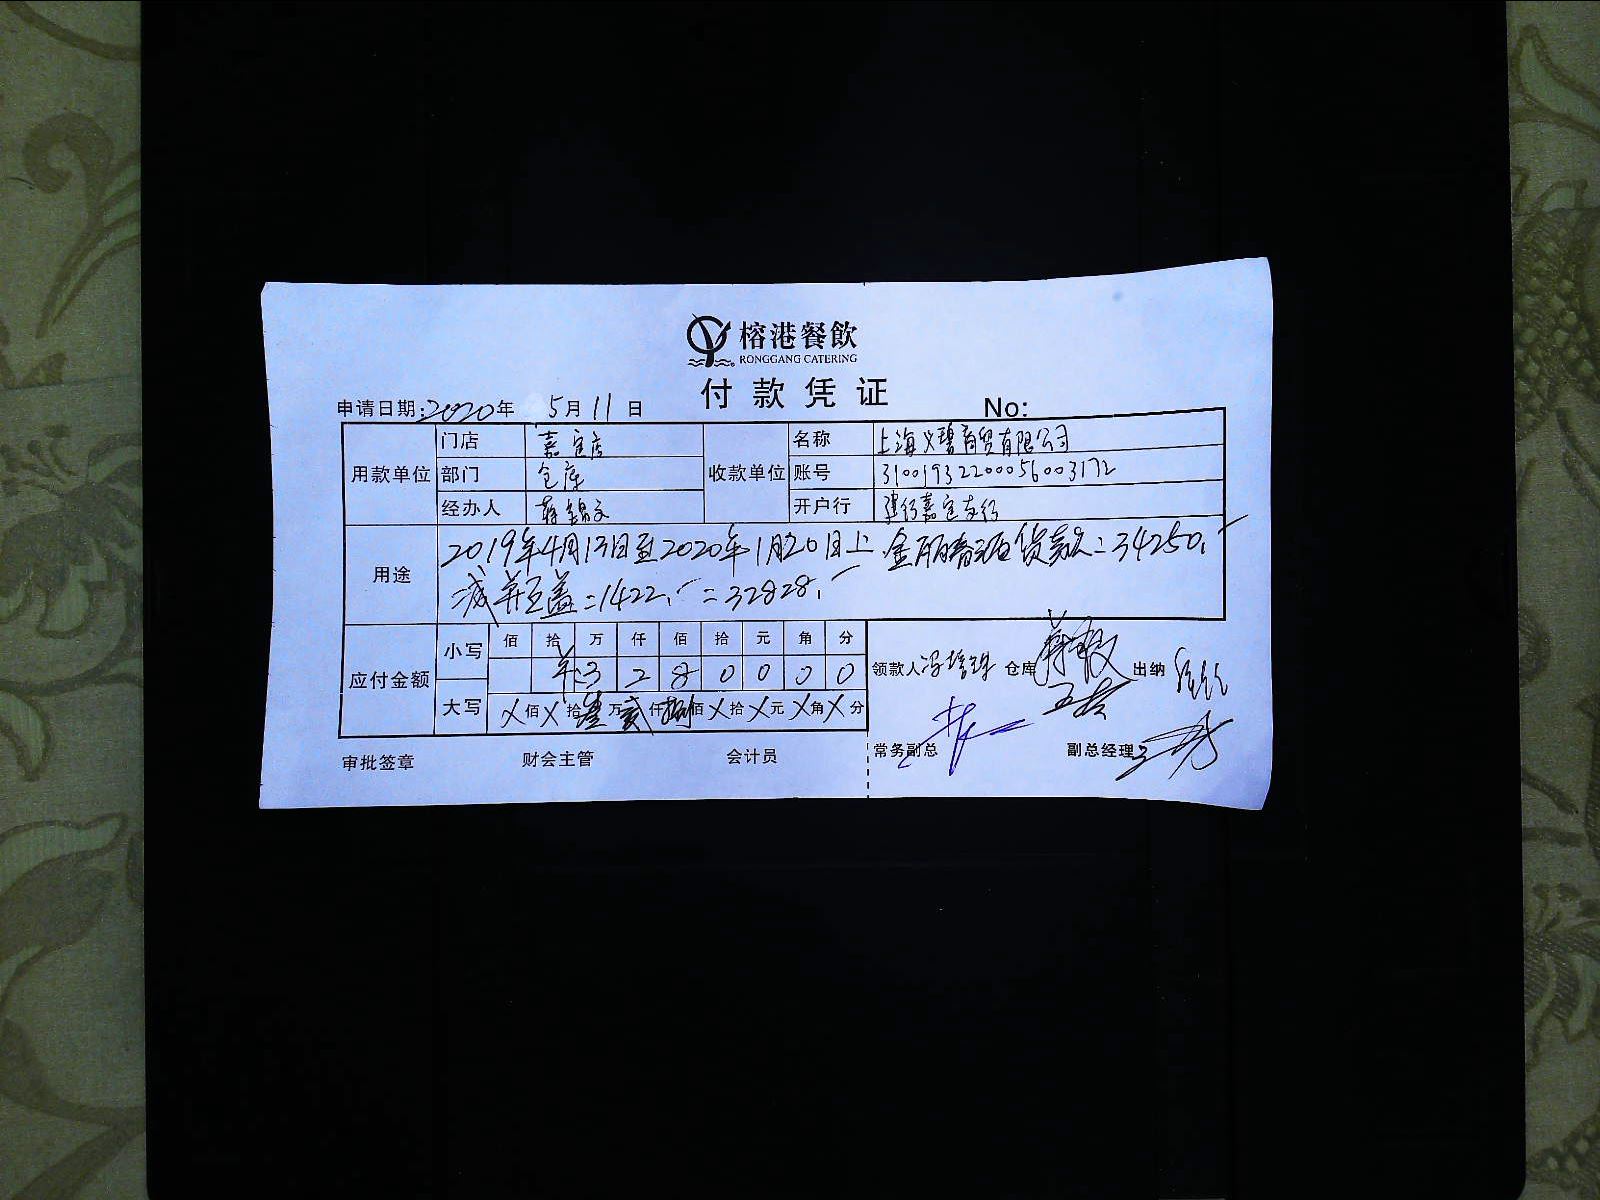 榕港餐飲
RONGGANG CATERING
付款凭证
申请日期:2020年 5月11日 No:
用款单位 门店 嘉定店 收款单位 名称 上海义碧商贸有限公司
部门 仓库 账号 31001932200056003172
经办人 蒋锦文 开户行 建行嘉定支行
用途 2019年4月13日至2020年1月20日上 金丽 货款=34250.-
减 =1422.- =32828.-
应付金额 小写 佰 拾 万 仟 佰 拾 元 角 分
羊 3 2 8 0 0 0 0
大写 X佰X拾叁万贰仟捌佰X拾X元X角X分
领款人 仓库 出纳
审批签章 财会主管 会计员 常务副总 副总经理